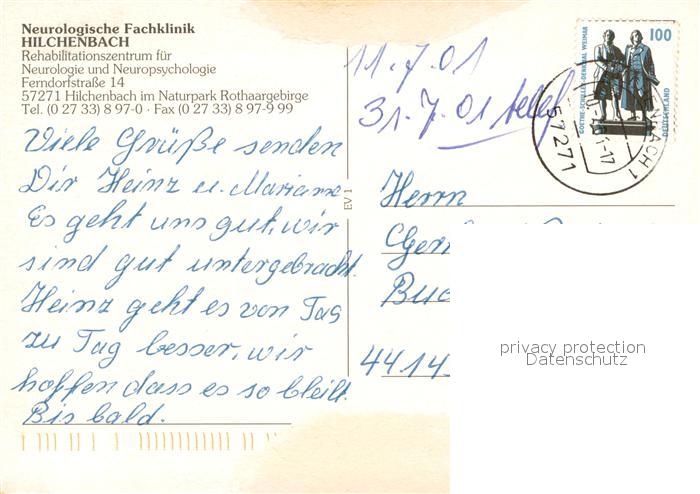 Neurologische Fachklinik
HILCHENBACH
Rehabilitationszentrum für
Neurologie und Neuropsychologie
Ferndorfstraße 14
57271 Hilchenbach im Naturpark Rothaargebirge
Tel. (0 27 33) 8 97-0 · Fax (0 27 33) 8 97-9 99
Viele Grüße senden
Dir Heinz u. Mariann
Es geht uns gut, wir
sind gut untergebracht.
Heinz geht es von Tag
zu Tag besser, wir
hoffen dass es so bleibt.
Bis bald.
EV 1
11.7.01
31.7.01 telef
GOETHE-SCHILLER-DENKMAL WEIMAR
100
DEUTSCHLAND
57271
1
-17
Herrn
4414
privacy protection
Datenschutz